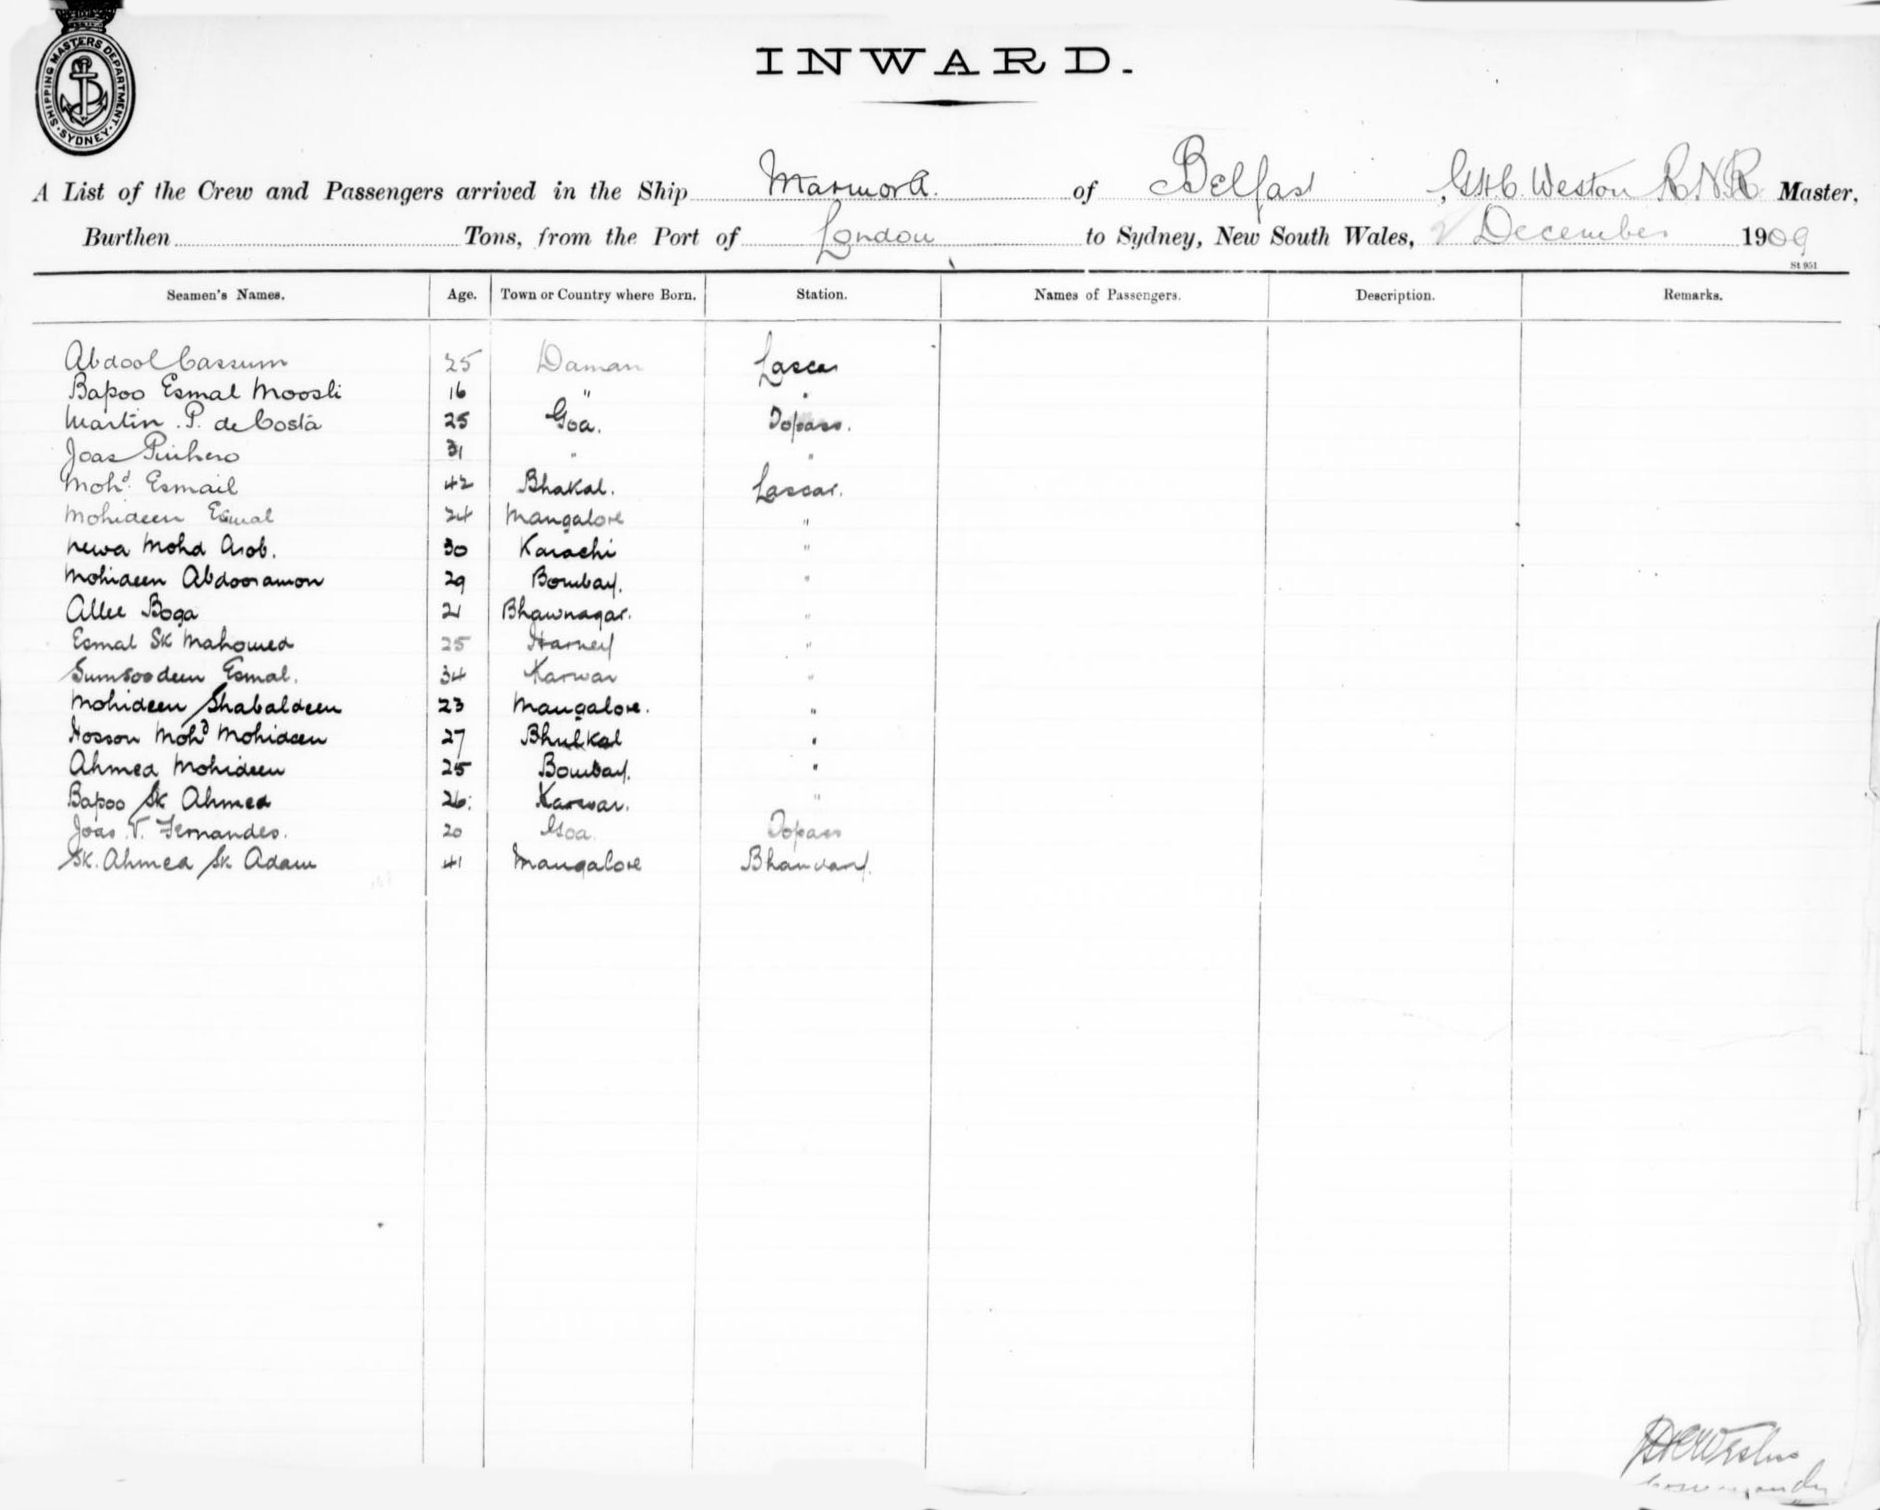 SHIPPING MASTERS DEPARTMENT
SYDNEY
INWARD.
A List of the Crew and Passengers arrived in the Ship Marmora. of Belfast, G.H.C. Weston R.N.R. Master,
Burthen Tons, from the Port of London to Sydney, New South Wales, December 1909
St 951
Seamen's Names. Age. Town or Country where Born. Station. Names of Passengers. Description. Remarks.
Abdool Cassum 25 Daman Lascar
Bapoo Esmal Moosli 16 " "
Martin. P. de Costa 25 Goa. Topass.
Joas Pinhero 31 " "
Mohd. Esmail 42 Bhakal. Lascar.
Mohideen Esmal 24 Mangalore "
Mohd Arob. 30 Karachi "
Mohideen Abdooramon 29 Bombay. "
Allee Boga 21 Bhawnagar. "
Esmal Sk Mahomed 25 Harney "
Sumsoodeen Esmal. 34 Karwar "
Mohideen Shabaldeen 23 Mangalore. "
Hosson Mohd Mohideen 27 Bhulkal "
Ahmed Mohideen 25 Bombay. "
Bapoo Sk Ahmed 26. Karwar. "
Joas. V. Fernandes. 20 Goa. Topass
Sk. Ahmed Sk Adam 41 Mangalore Bhandary.
GHC Weston
Commander